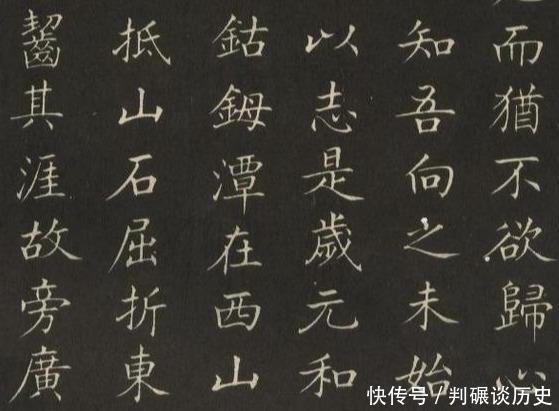 而猶不欲歸心
知吾向之未始
以志是歲元和
鈷鉧潭在西山
抵山石屈折東
齧其涯故旁廣
快传号/判碾谈历史